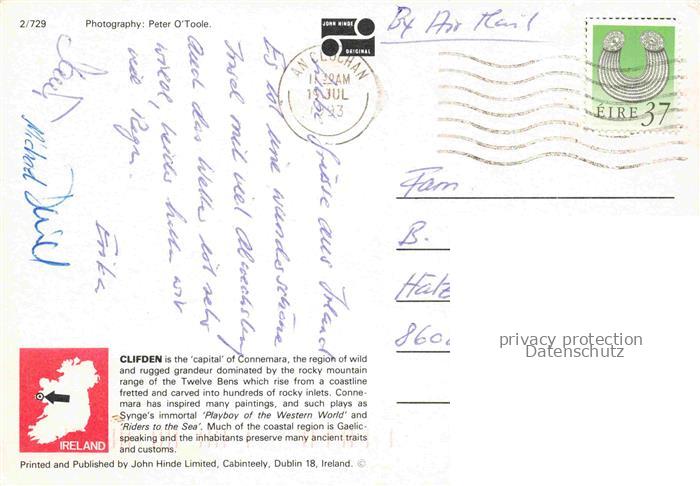 2/729 Photography: Peter O'Toole.
JOHN HINDE
ORIGINAL
By Air Mail
AN CLOCHAN
AM
JUL
ÉIRE 37
Grüsse aus Irland
Es ist eine wunderschöne
Insel mit viel Abwechslung
und das Wetter ist sehr
leider
viel Regen.
Erika
Fam
B.
Hatz
860
privacy protection
Datenschutz
CLIFDEN is the 'capital' of Connemara, the region of wild
and rugged grandeur dominated by the rocky mountain
range of the Twelve Bens which rise from a coastline
fretted and carved into hundreds of rocky inlets. Conne-
mara has inspired many paintings, and such plays as
Synge's immortal 'Playboy of the Western World' and
'Riders to the Sea'. Much of the coastal region is Gaelic-
speaking and the inhabitants preserve many ancient traits
and customs.
IRELAND
Printed and Published by John Hinde Limited, Cabinteely, Dublin 18, Ireland. ©